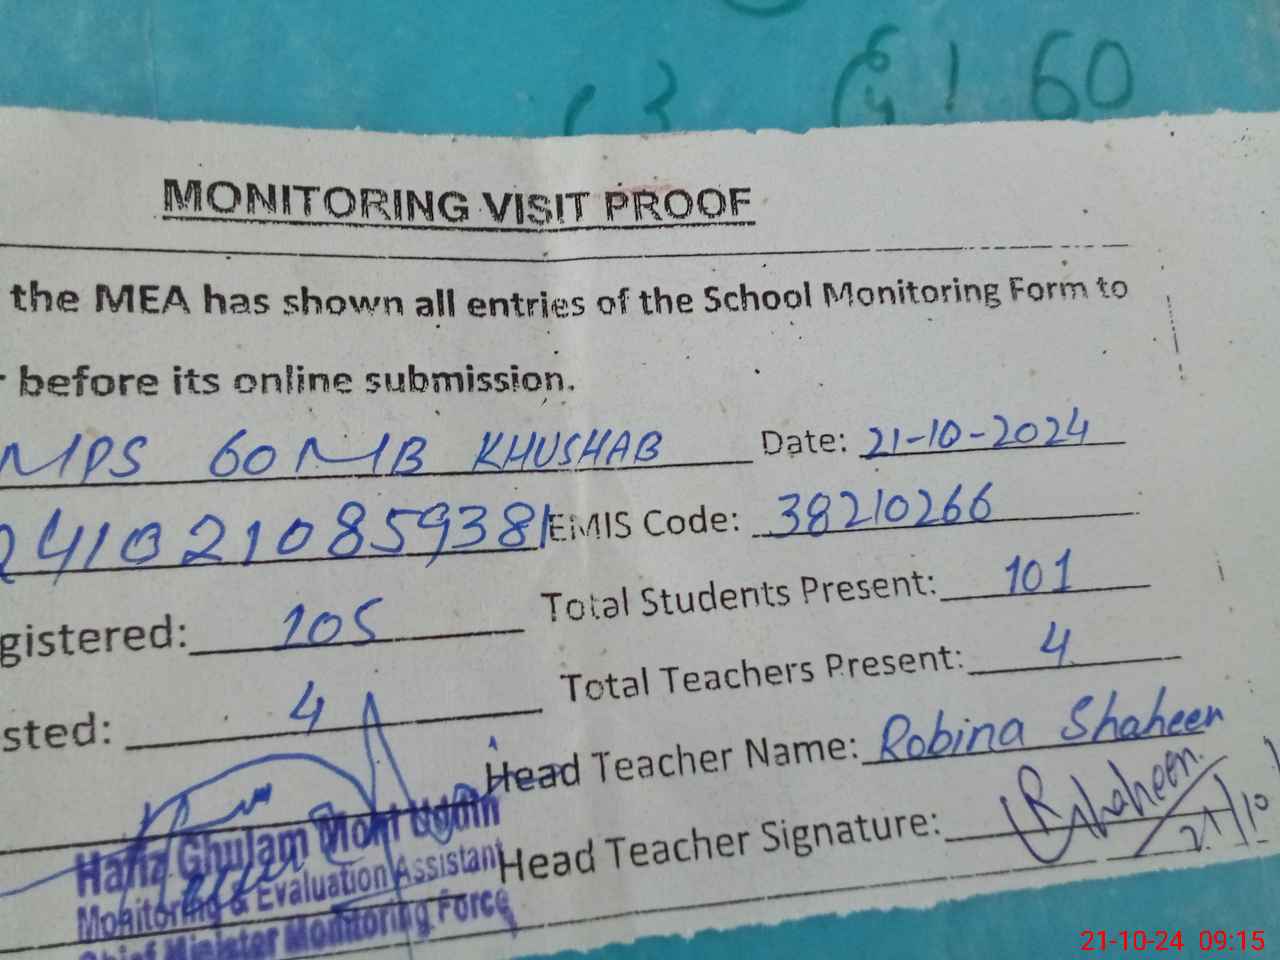 60
MONITORING VISIT PROOF
the MEA has shown all entries of the School Monitoring Form to
before its online submission.
MPS 60 MB KHUSHAB Date: 21-10-2024
241021085938 EMIS Code: 38210266
gistered: 105 Total Students Present: 101
sted: 4 Total Teachers Present: 4
Head Teacher Name: Robina Shaheen
Head Teacher Signature: RShaheen 21/10
Hafiz Ghulam Mohi Uddin
Monitoring & Evaluation Assistant
Chief Minister Monitoring Force
21-10-24 09:15